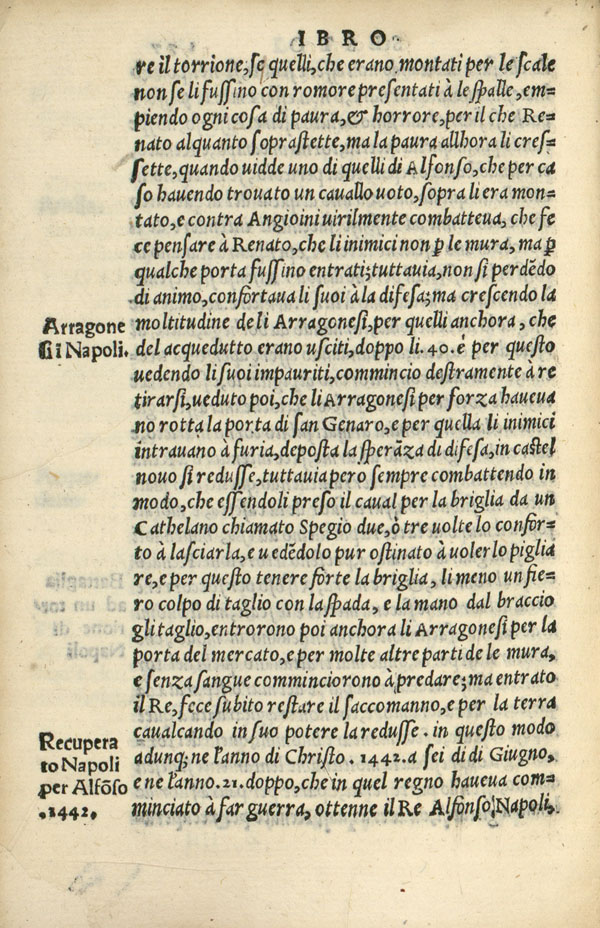 IBRO
re il torrione, se quelli, che erano montati per le scale
non se li fussino con romore presentati à le spalle, em=
piendo ogni cosa di paura, & horrore, per il che Re=
nato alquanto soprastette, ma la paura allhora li cres=
sette, quando uidde uno di quelli di Alfonso, che per ca
so hauendo trouato un cauallo uoto, sopra li era mon=
tato, e contra Angioini uirilmente combatteua, che fe
ce pensare à Renato, che li inimici non ꝑ le mura, ma ꝑ
qualche porta fussino entrati; tuttauia, non si perdẽdo
di animo, confortaua li suoi à la difesa; ma crescendo la
Arragone
moltitudine de li Arragonesi, per quelli anchora, che
si ĩ Napoli.
del acquedutto erano usciti, doppo li .40. è per questo
uedendo li suoi impauriti, commincio destramente à re
tirarsi, ueduto poi, che li Arragonesi per forza haueua
no rotta la porta di san Genaro, e per quella li inimici
intrauano à furia, deposta la sperãza di difesa, in castel
nouo si redusse, tuttauia però sempre combattendo in
modo, che essendoli preso il caual per la briglia da un
Cathelano chiamato Spegio due, ò tre uolte lo confor=
to à lasciarla, e uedẽdolo pur ostinato à uolerlo piglia
re, e per questo tenere forte la briglia, li meno un fie=
ro colpo di taglio con la spada, e la mano dal braccio
gli taglio, entrorono poi anchora li Arragonesi per la
porta del mercato, e per molte altre parti de le mura,
e senza sangue comminciorono à predare; ma entrato
il Re, fece subito restare il saccomanno, e per la terra
caualcando in suo potere la redusse. in questo modo
Recupera
adunq; ne l'anno di Christo .1442. a sei di di Giugno,
to Napoli
e ne l'anno .21. doppo, che in quel regno haueua com=
per Alfõso
minciato à far guerra, ottenne il Re Alfonso Napoli,
.1442.